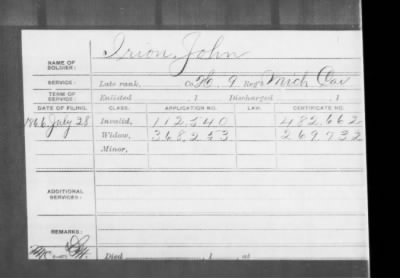 NAME OF SOLDIER: Irion, John
SERVICE: Late rank, Co. H, 9 Reg't Mich Cav
TERM OF SERVICE: Enlisted , 1 Discharged , 1
DATE OF FILING. CLASS. APPLICATION NO. LAW. CERTIFICATE NO.
1866, July 28 Invalid, 112,540 482,662
Widow, 368,253 269,732
Minor,
ADDITIONAL SERVICES:
REMARKS:
Died , 1 , at